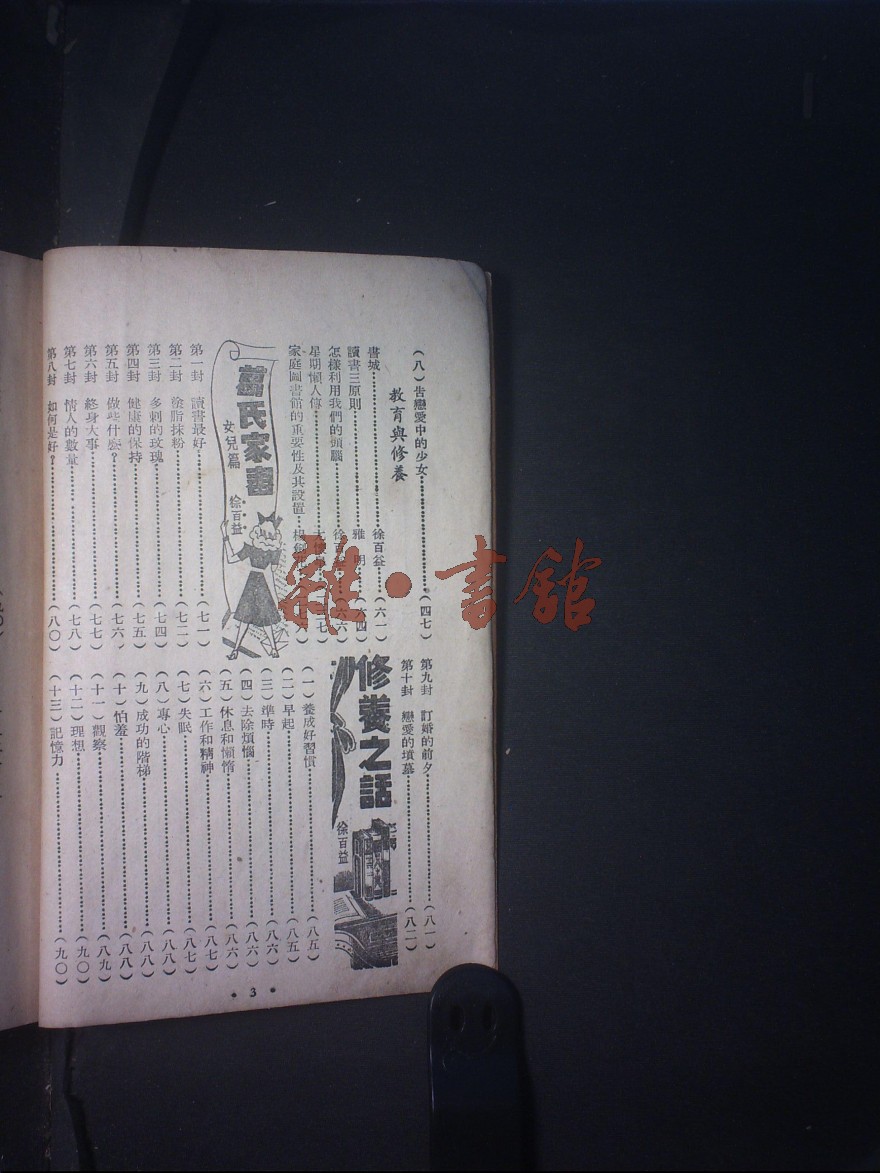 (八)告戀愛中的少女(四七)
教育與修養
書城徐百益(六一)
讀書三原則雅明(六四)
怎樣利用我們的頭腦徐百益(六六)
星期懶人傳
家庭圖書館的重要性及其設置
萬氏家書
女兒篇
徐百益
第一封 讀書最好(七一)
第二封 塗脂抹粉(七二)
第三封 多刺的玫瑰(七四)
第四封 健康的保持(七五)
第五封 做些什麼?(七六)
第六封 終身大事(七七)
第七封 情人的數量(七八)
第八封 如何是好?(八〇)
第九封 訂婚的前夕(八一)
第十封 戀愛的墳墓(八二)
修養之話
徐百益
(一)養成好習慣(八五)
(二)早起(八五)
(三)準時(八六)
(四)去除煩惱(八六)
(五)休息和懶惰(八六)
(六)工作和精神(八七)
(七)失眠(八七)
(八)專心(八八)
(九)成功的階梯(八八)
(十)怕羞(八八)
(十一)觀察(八九)
(十二)理想(九〇)
(十三)記憶力(九〇)
• 3 •
雜·書館